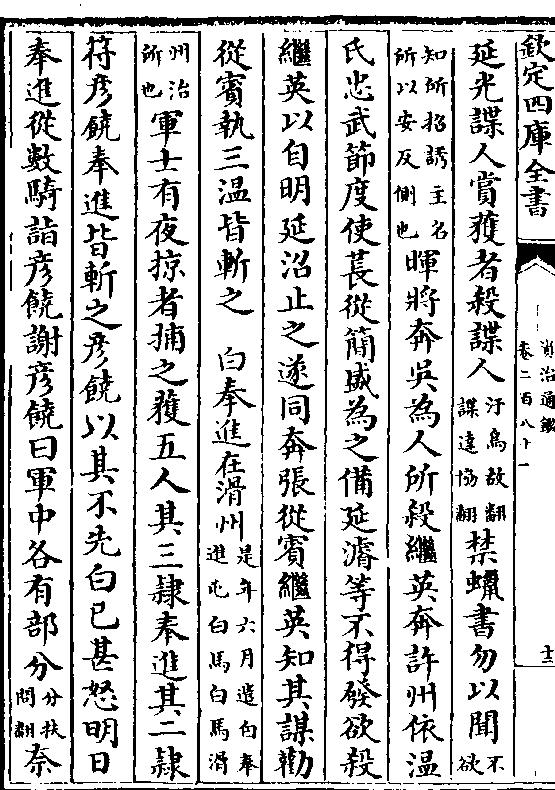 欽定四庫全書
資治通鑑
卷二百八十一
十三
延光諜人賞獲者殺諜人汙烏故翻諜達協翻禁蠟書勿以聞不欲
知所招誘主名所以安反側也暉將奔吳為人所殺繼英奔許州依溫
氏忠武節度使萇從簡盛為之備延濬等不得發欲殺
繼英以自明延沼止之遂同奔張從賓繼英知其謀勸
從賓執三溫皆斬之 白奉進在滑州是年六月遣白奉進屯白馬白馬滑
州治所也軍士有夜掠者捕之獲五人其三隸奉進其二隸
符彥饒奉進皆斬之彥饒以其不先白已甚怒明日
奉進從數騎詣彥饒謝彥饒曰軍中各有部分分扶問翻奈